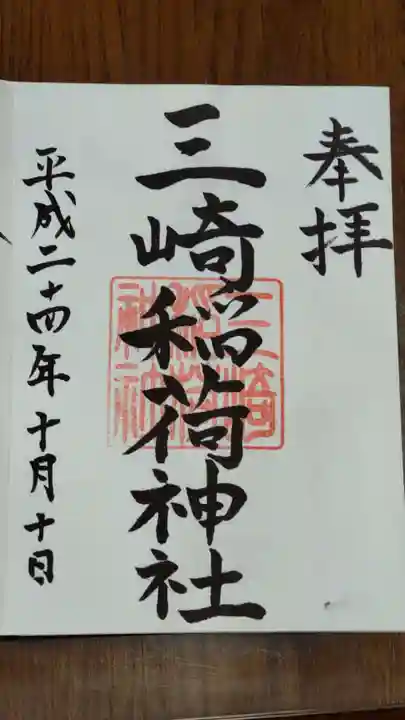 奉拝
三崎稲荷神社
三崎稲荷神社
平成二十四年十月十日